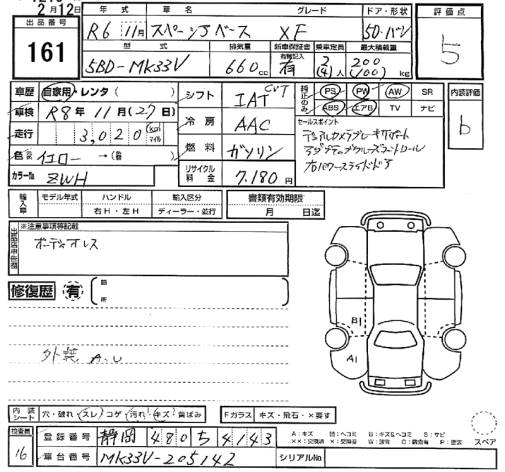 2月12日
出品番号
161
年式 車名 グレード ドア・形状
R6 11月 スペーシアベース XF 5D・バン
型式 排気量 新車保証書 有/簡記入 乗車定員 最大積載量
5BD-MK33V 660cc 有 2(4)人 200(100)kg
評価点
5
車歴 自家用・レンタ( )
車検 R8年11月(27日)
走行 3,020 km マイル
色 イエロー→(色)
カラーNo ZWH
シフト IAT CVT
冷房 AAC
燃料 ガソリン
リサイクル料金 7,180円
純正のみ PS PW AW SR
ABS エアB TV ナビ
セールスポイント
デュアルカメラブレーキサポート
アダプティブクルーズコントロール
内装評価
b
輸入車 モデル年式 ハンドル 輸入区分
年 右H・左H ディーラー・並行
書類有効期限
月 日迄
※注意事項等記載
ボーディオレス
修復歴 有
箇所
外装 A.U
B1
A1
内装シート 穴・破れ スレ コゲ 汚れ キズ 黄ばみ
Fガラス キズ・飛石・×要す
A:キズ U:ヘコミ B:キズ&ヘコミ S:サビ
スペア
検査員
16
登録番号 静岡 480 ち 4143
車台番号 MK33V-205142
シリアルNo